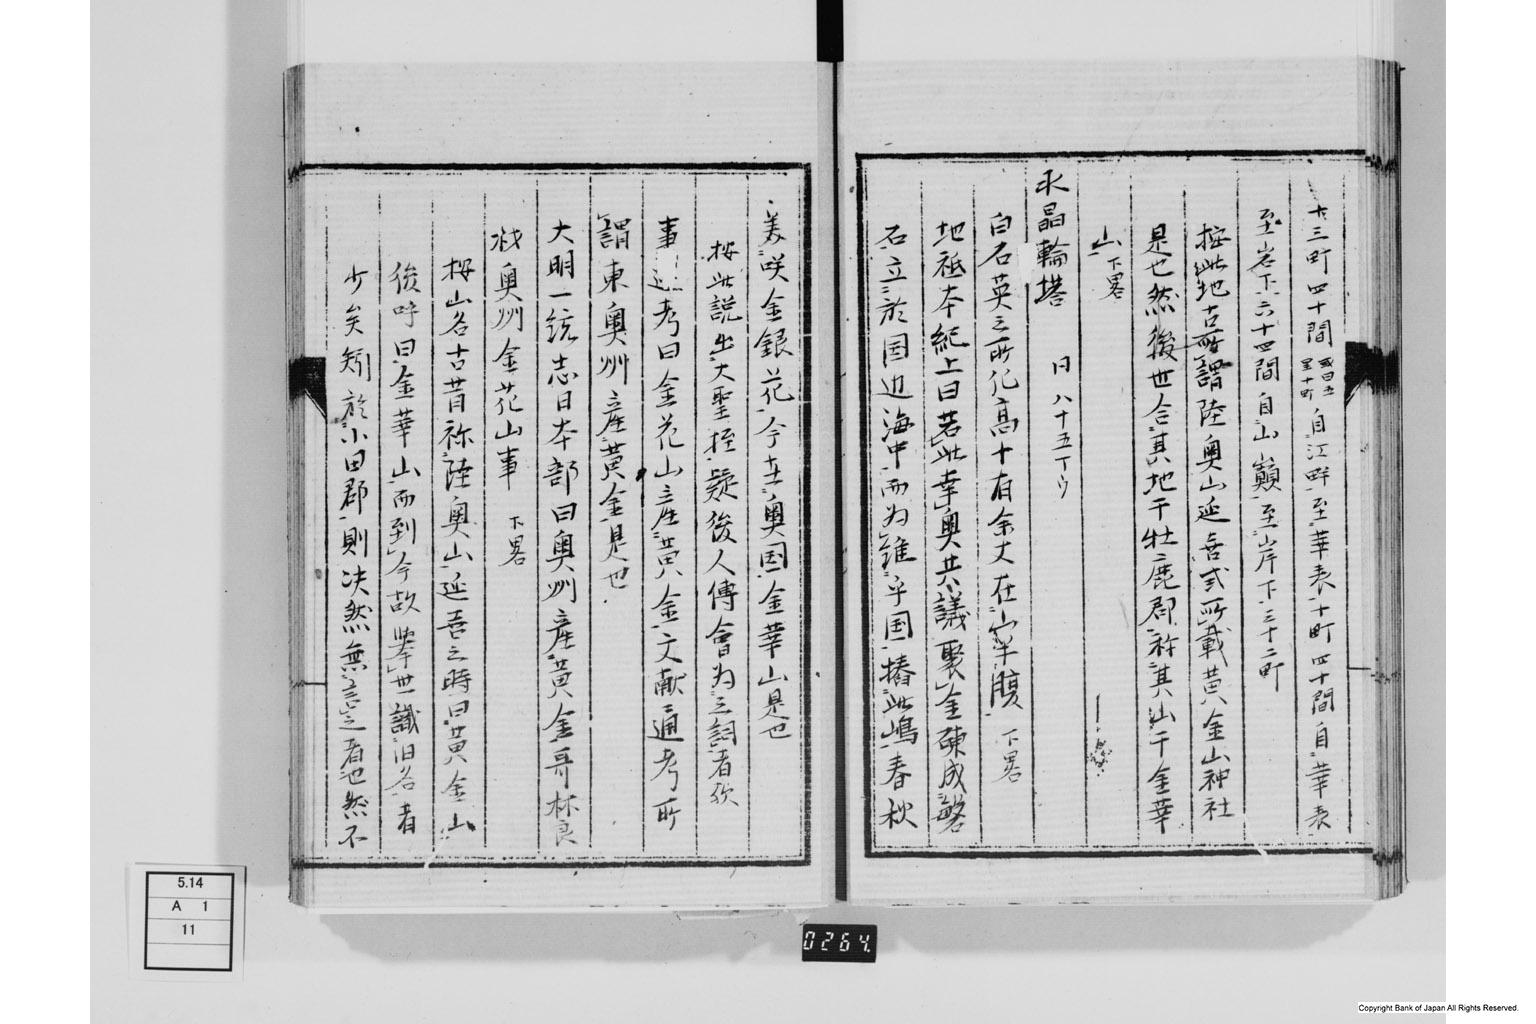 十三町四十間 自江畔至華表十町四十間自華表
至岩下六十四間自山巓至岸下三十二町
按此地古所謂陸奥山延喜式所載黄金山神社
是也然後世合其地于牡鹿郡称其山于金華
山下畧
水晶輪塔 日八十五丁ウ
白石英之所化高十有余丈在山半腹下畧
地祗本紀上曰若此幸奥共議聚金練成磐
石立於国辺海中而為維乎国椿此嶋春秋
美咲金銀花今在奥国金華山是也
按此説出大聖拒疑後人傳會為之詞者欤
事 考曰金花山産黄金文献通考所
謂東奥州産黄金是也
大明一統志日本部曰奥州産黄金哥林良
材奥州金花山事 下畧
按山名古昔称陸奥山延喜之時曰黄金山
後呼曰金華山而到今故挙世識旧名者
少矣矧於小田郡則决然無言之者也然不
5.14
A 1
11
0264.
Copyright Bank of Japan All Rights Reserved.